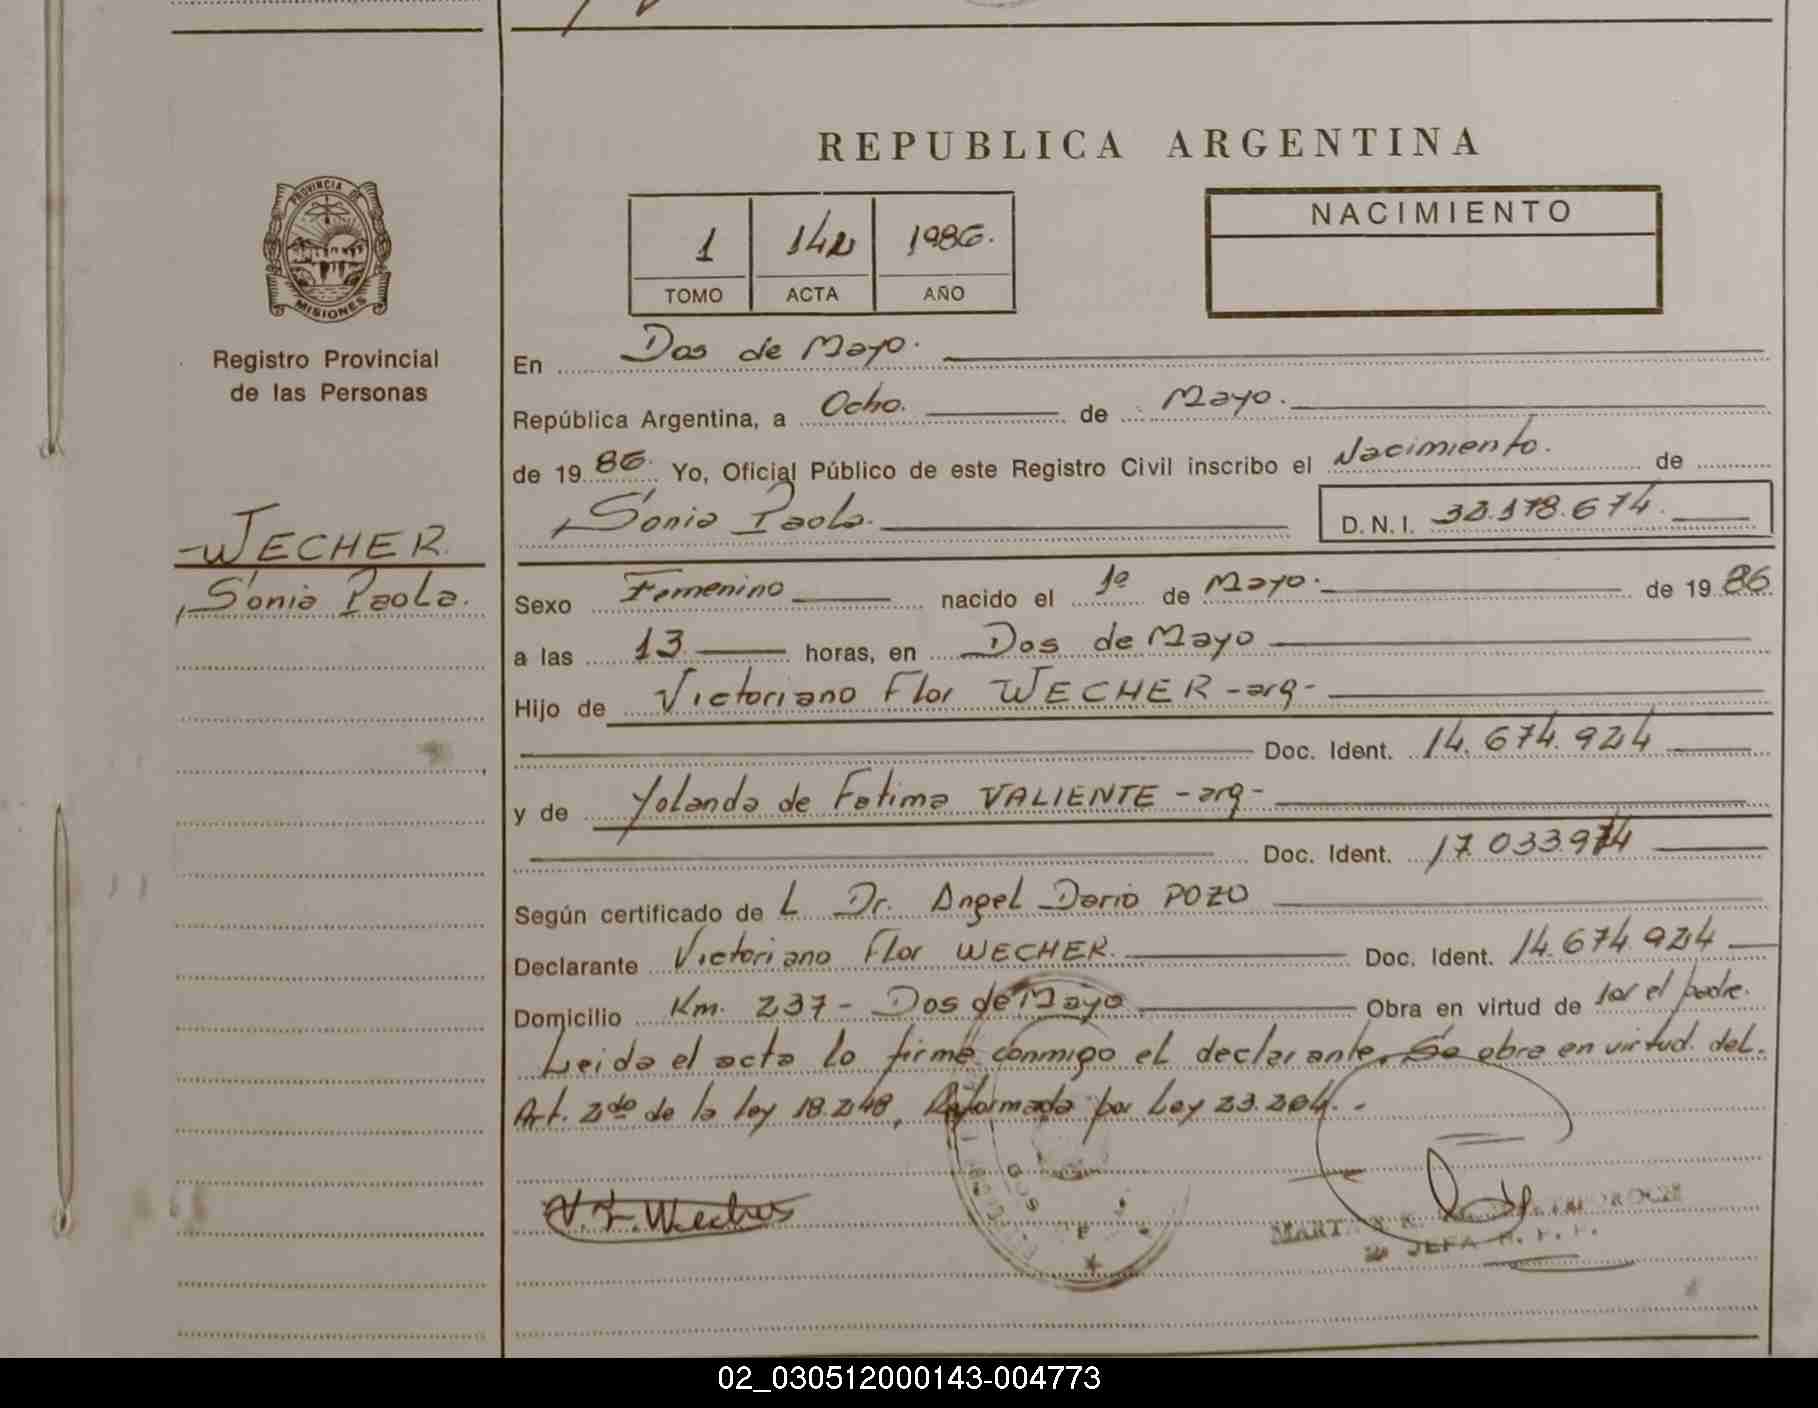 REPUBLICA ARGENTINA
PROVINCIA DE
MISIONES
Registro Provincial
de las Personas
WECHER
Sonia Paola.
1 142 1986.
TOMO ACTA AÑO
NACIMIENTO
En Dos de Mayo.
República Argentina, a Ocho. de Mayo.
de 19 86. Yo, Oficial Público de este Registro Civil inscribo el Nacimiento. de
Sonia Paola. D.N.I. 32.178.674.
Sexo Femenino nacido el 1º de Mayo. de 19 86.
a las 13 horas, en Dos de Mayo
Hijo de Victoriano Flor WECHER -arg-
Doc. Ident. 14.674.924
y de Yolanda de Fatima VALIENTE -arg-
Doc. Ident. 17.033.974
Según certificado de L Dr. Angel Dario POZO
Declarante Victoriano Flor WECHER. Doc. Ident. 14.674.924
Domicilio Km. 237 - Dos de Mayo Obra en virtud de ser el padre.
Leida el acta lo firma conmigo el declarante. Se obra en virtud del.
Art. 2do de la ley 18.248, Reformada por Ley 23.264. -
V. F. Wecher
JEFA R. P. P.
02_030512000143-004773